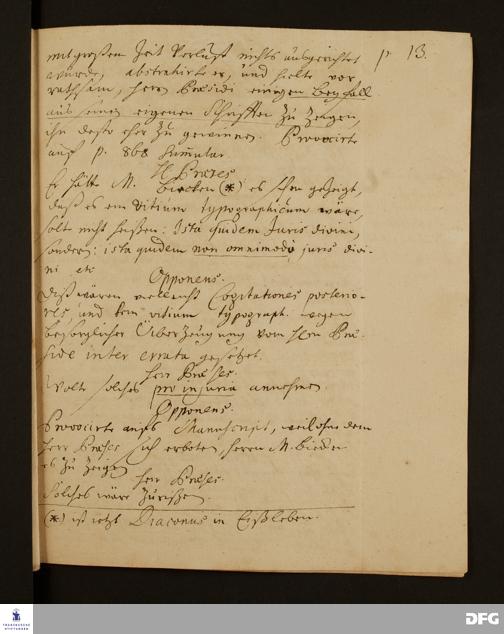 mit großen Zeit Verlust nichts ausgerichtet p. 13.
würde, abstrahirte er, und hielte vor
rathsam, Herrn Præsidi einigen Beyfall
aus seinen eigenen Schrifften zu zeigen,
ihn desto eher zu gewinnen. Provocirte
auf p. 868
H Præses
Er hätte M. Biecken (*) es schon gezeigt,
daß es ein vitium typographicum wäre,
solt nicht heißen: Ista quidem Juris divini,
sondern: ista quidem non omnimodò juris divi-
ni etc
Opponens.
Diß wären vielleicht Cogitationes posterio-
res, und kein vitium typograph. wegen
besorglicher Überzeugung vom Hrn Præ-
side inter errata gesetzet.
Herr Præses.
Wolte solches pro injuria annehmen
Opponens.
Provocirte aufs Manuscript, weil ohne dem
Herr Præses sich erboten, Herrn M. Biecken
es zu zeigen
Herr Præses.
Solches wäre zurißen.
(*) ist jetzt Diaconus in Eißleben.
FRANCKESCHE STIFTUNGEN
DFG